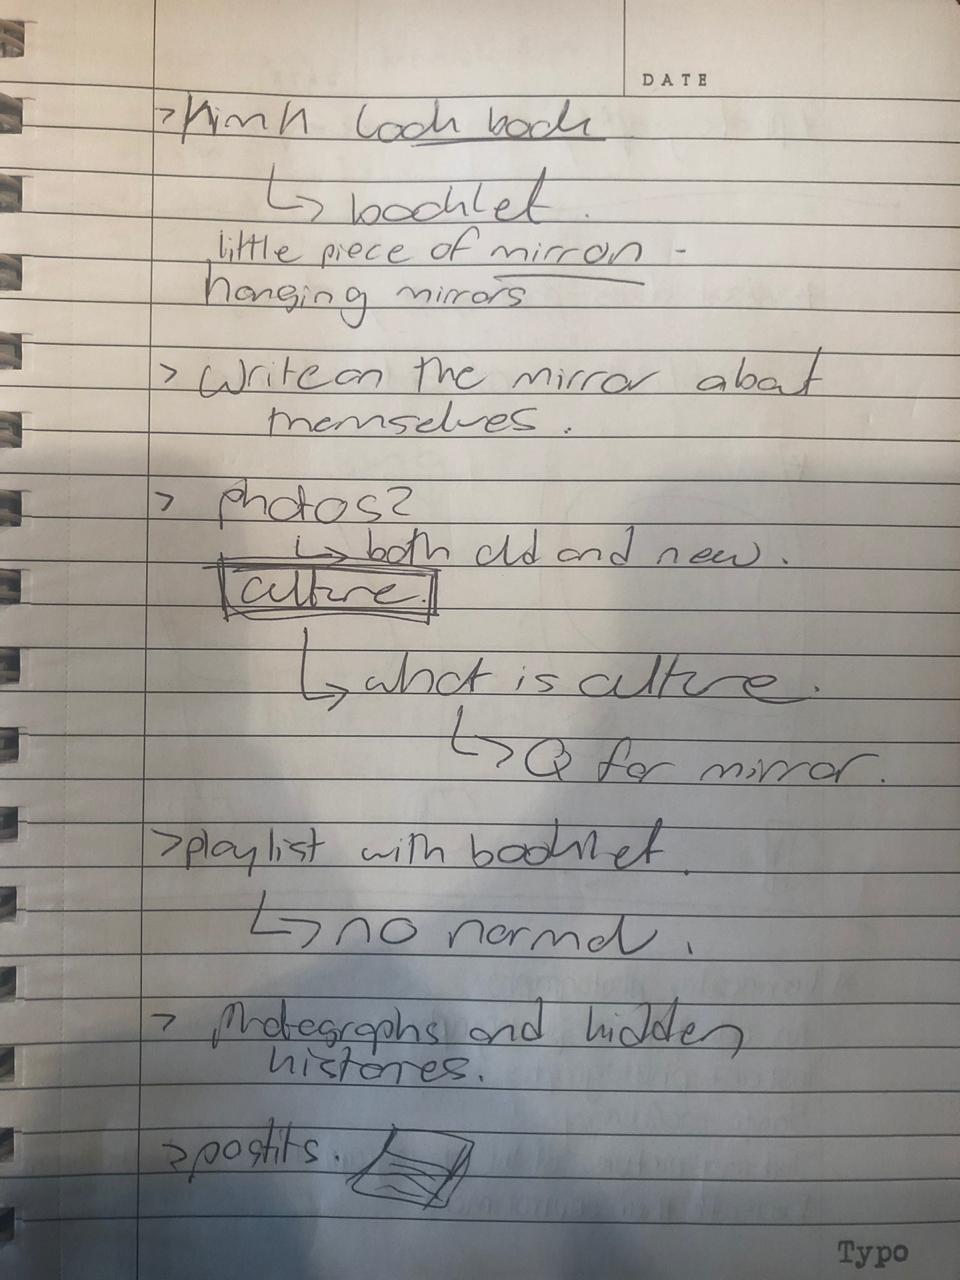 DATE
> look book
↳ booklet.
little piece of mirror -
hanging mirrors
> Write on the mirror about
themselves.
> photos?
↳ both old and new.
culture.
↳ what is culture.
↳ Q for mirror.
> playlist with booklet.
↳ no normal.
> Photographs and hidden
histories.
> postits.
Typo